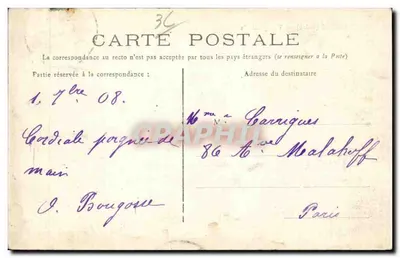 3c
CARTE POSTALE
La correspondance au recto n'est pas acceptée par tous les pays étrangers (se renseigner à la Poste)
Partie réservée à la correspondance :
Adresse du destinataire
1. 7bre 08.
Cordiale poignée de
main
Mme Garrigues
86 Ave Malakoff
Paris